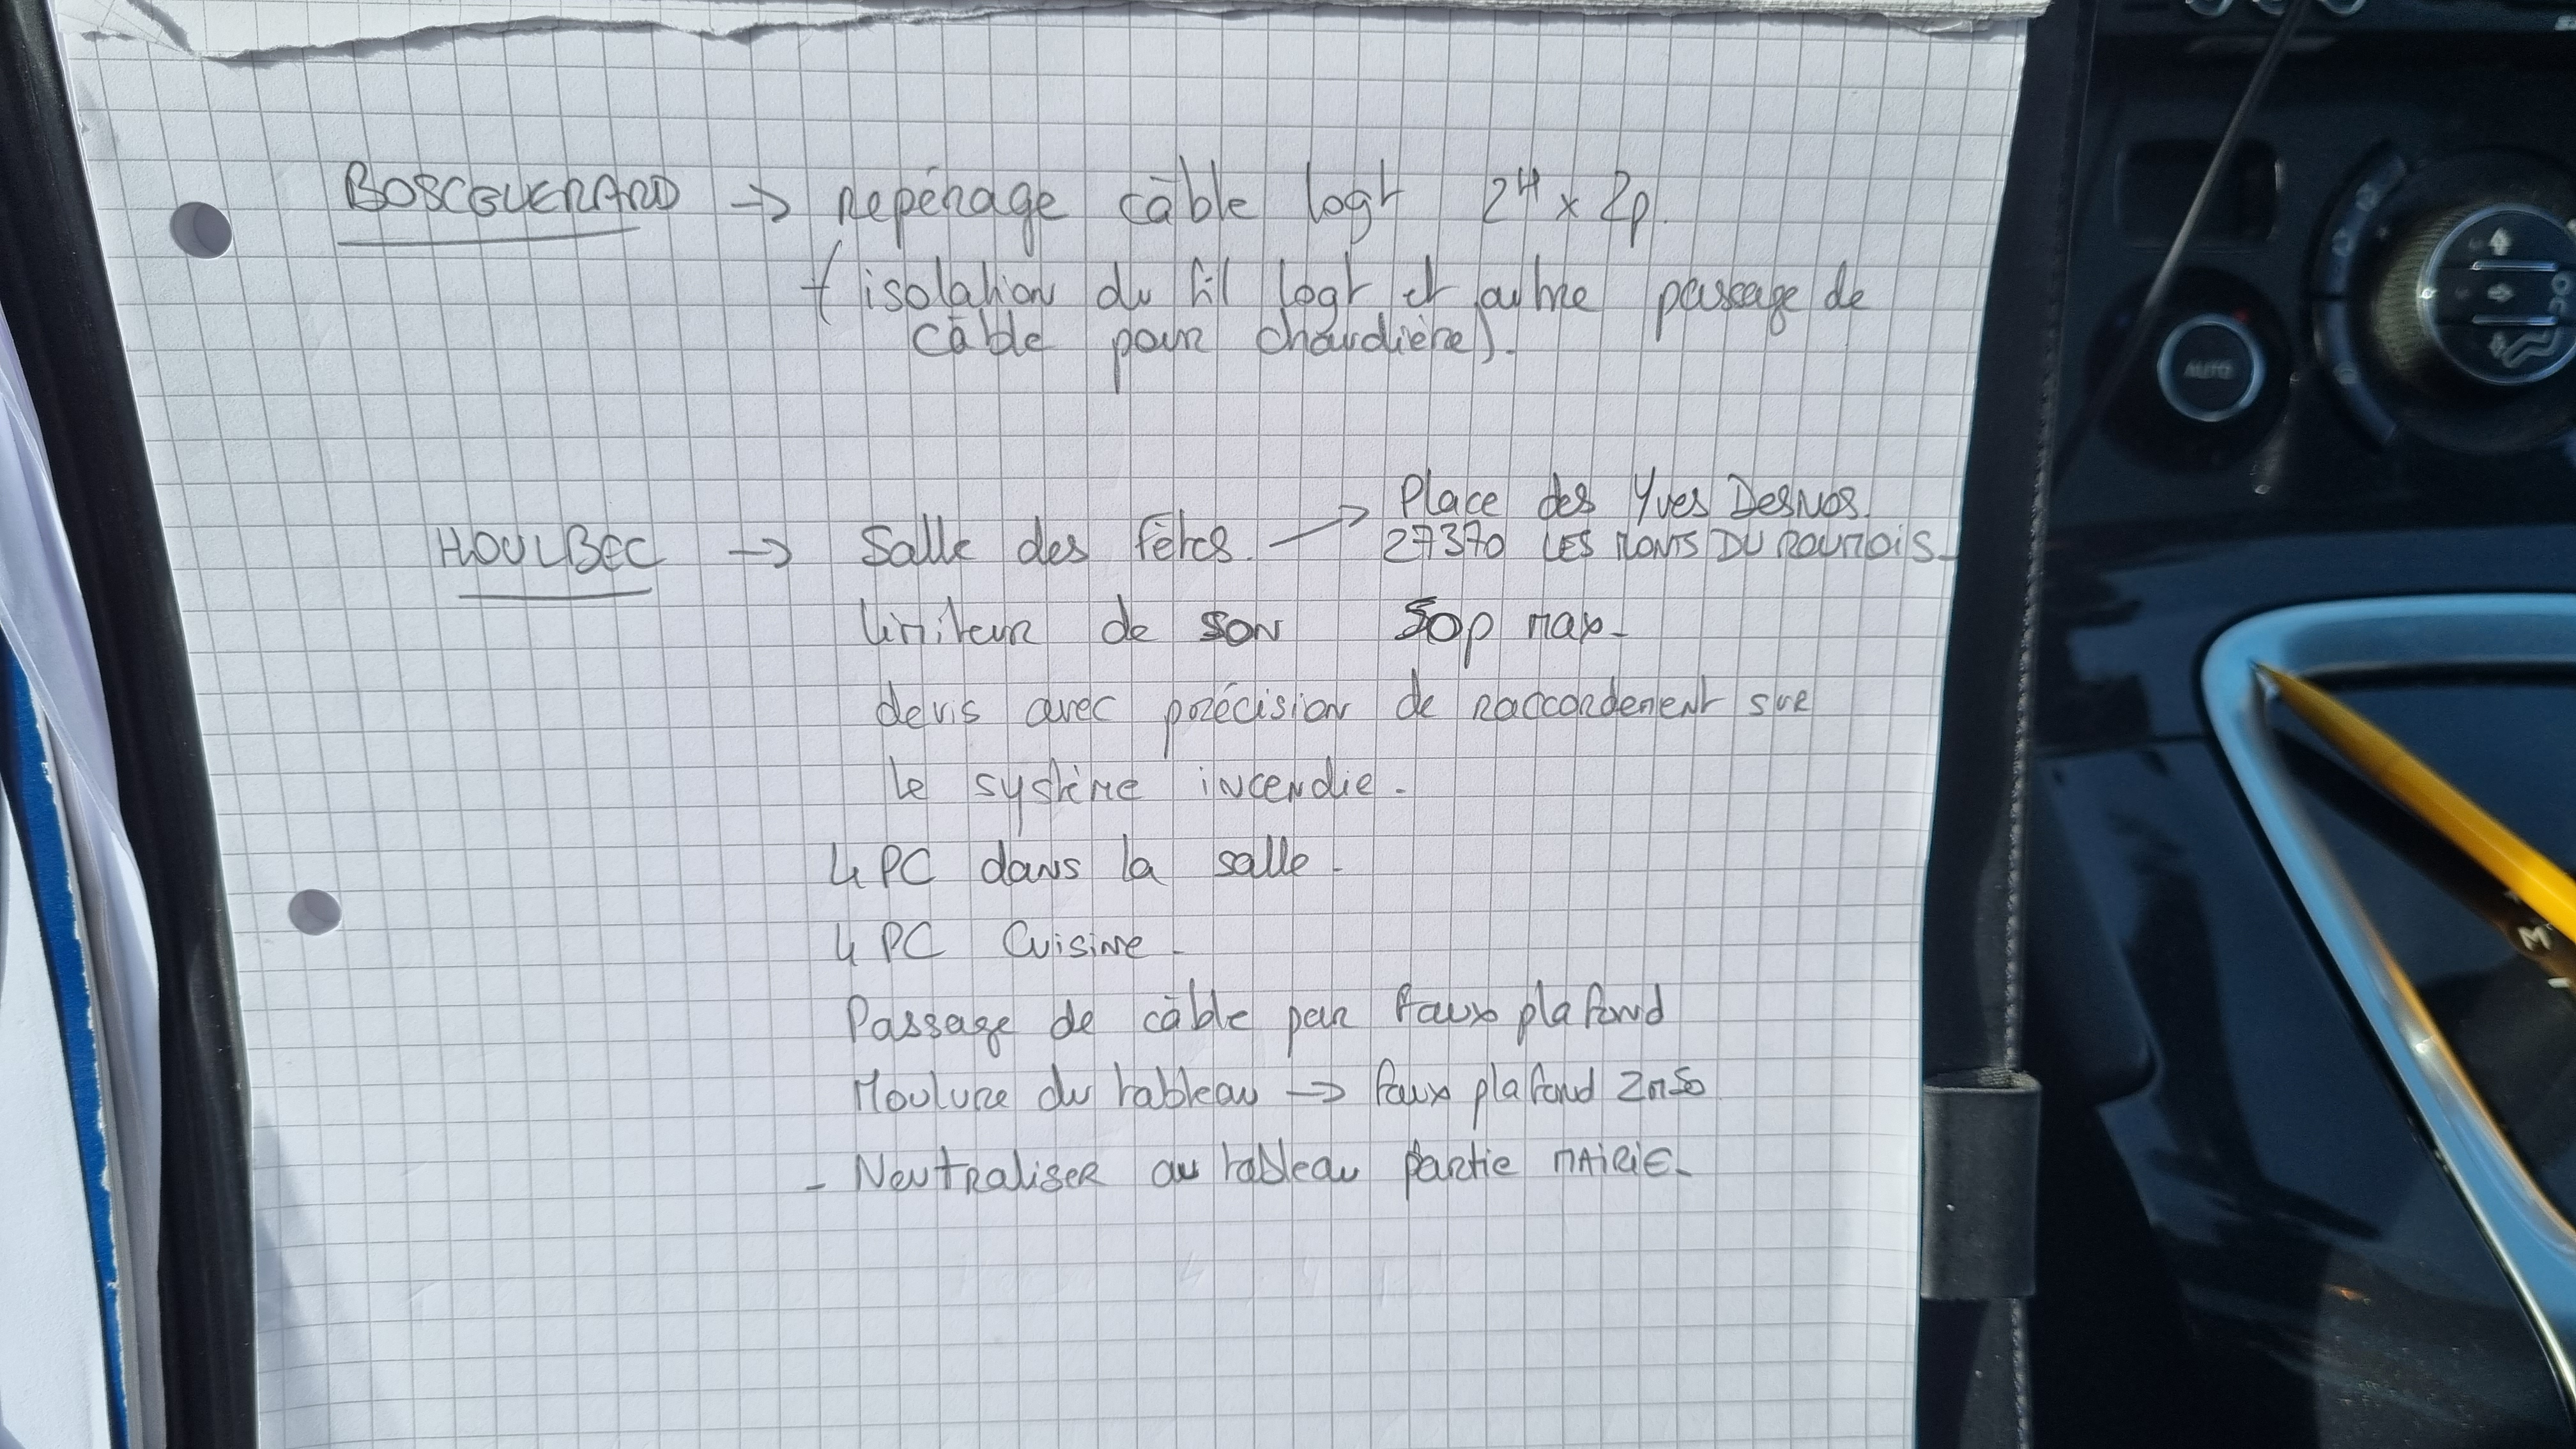 BOSCGUERARD → repérage câble logt 2H x 2p.
(isolation du fil logt et autre passage de
câble pour chaudière).
Place des Yves Desnos.
HOULBEC → Salle des fêtes. → 27370 LES MONTS DU ROUMOIS_
limiteur de son 50p max_
devis avec précision de raccordement sur
le système incendie.
4 PC dans la salle.
4 PC Cuisine.
Passage de câble par faux plafond
Moulure du tableau → faux plafond 2m50
- Neutraliser au tableau partie MAIRIE_
AUTO